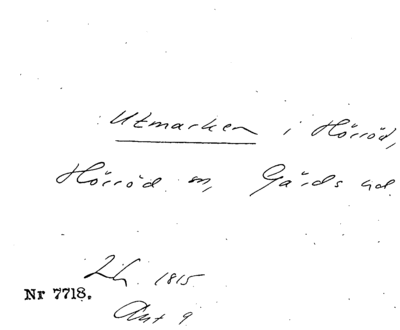 Utmarken i Hörröd,
Hörröd sn, Gärds hd.
Lh. 1815
Nr 7718.
Akt 9